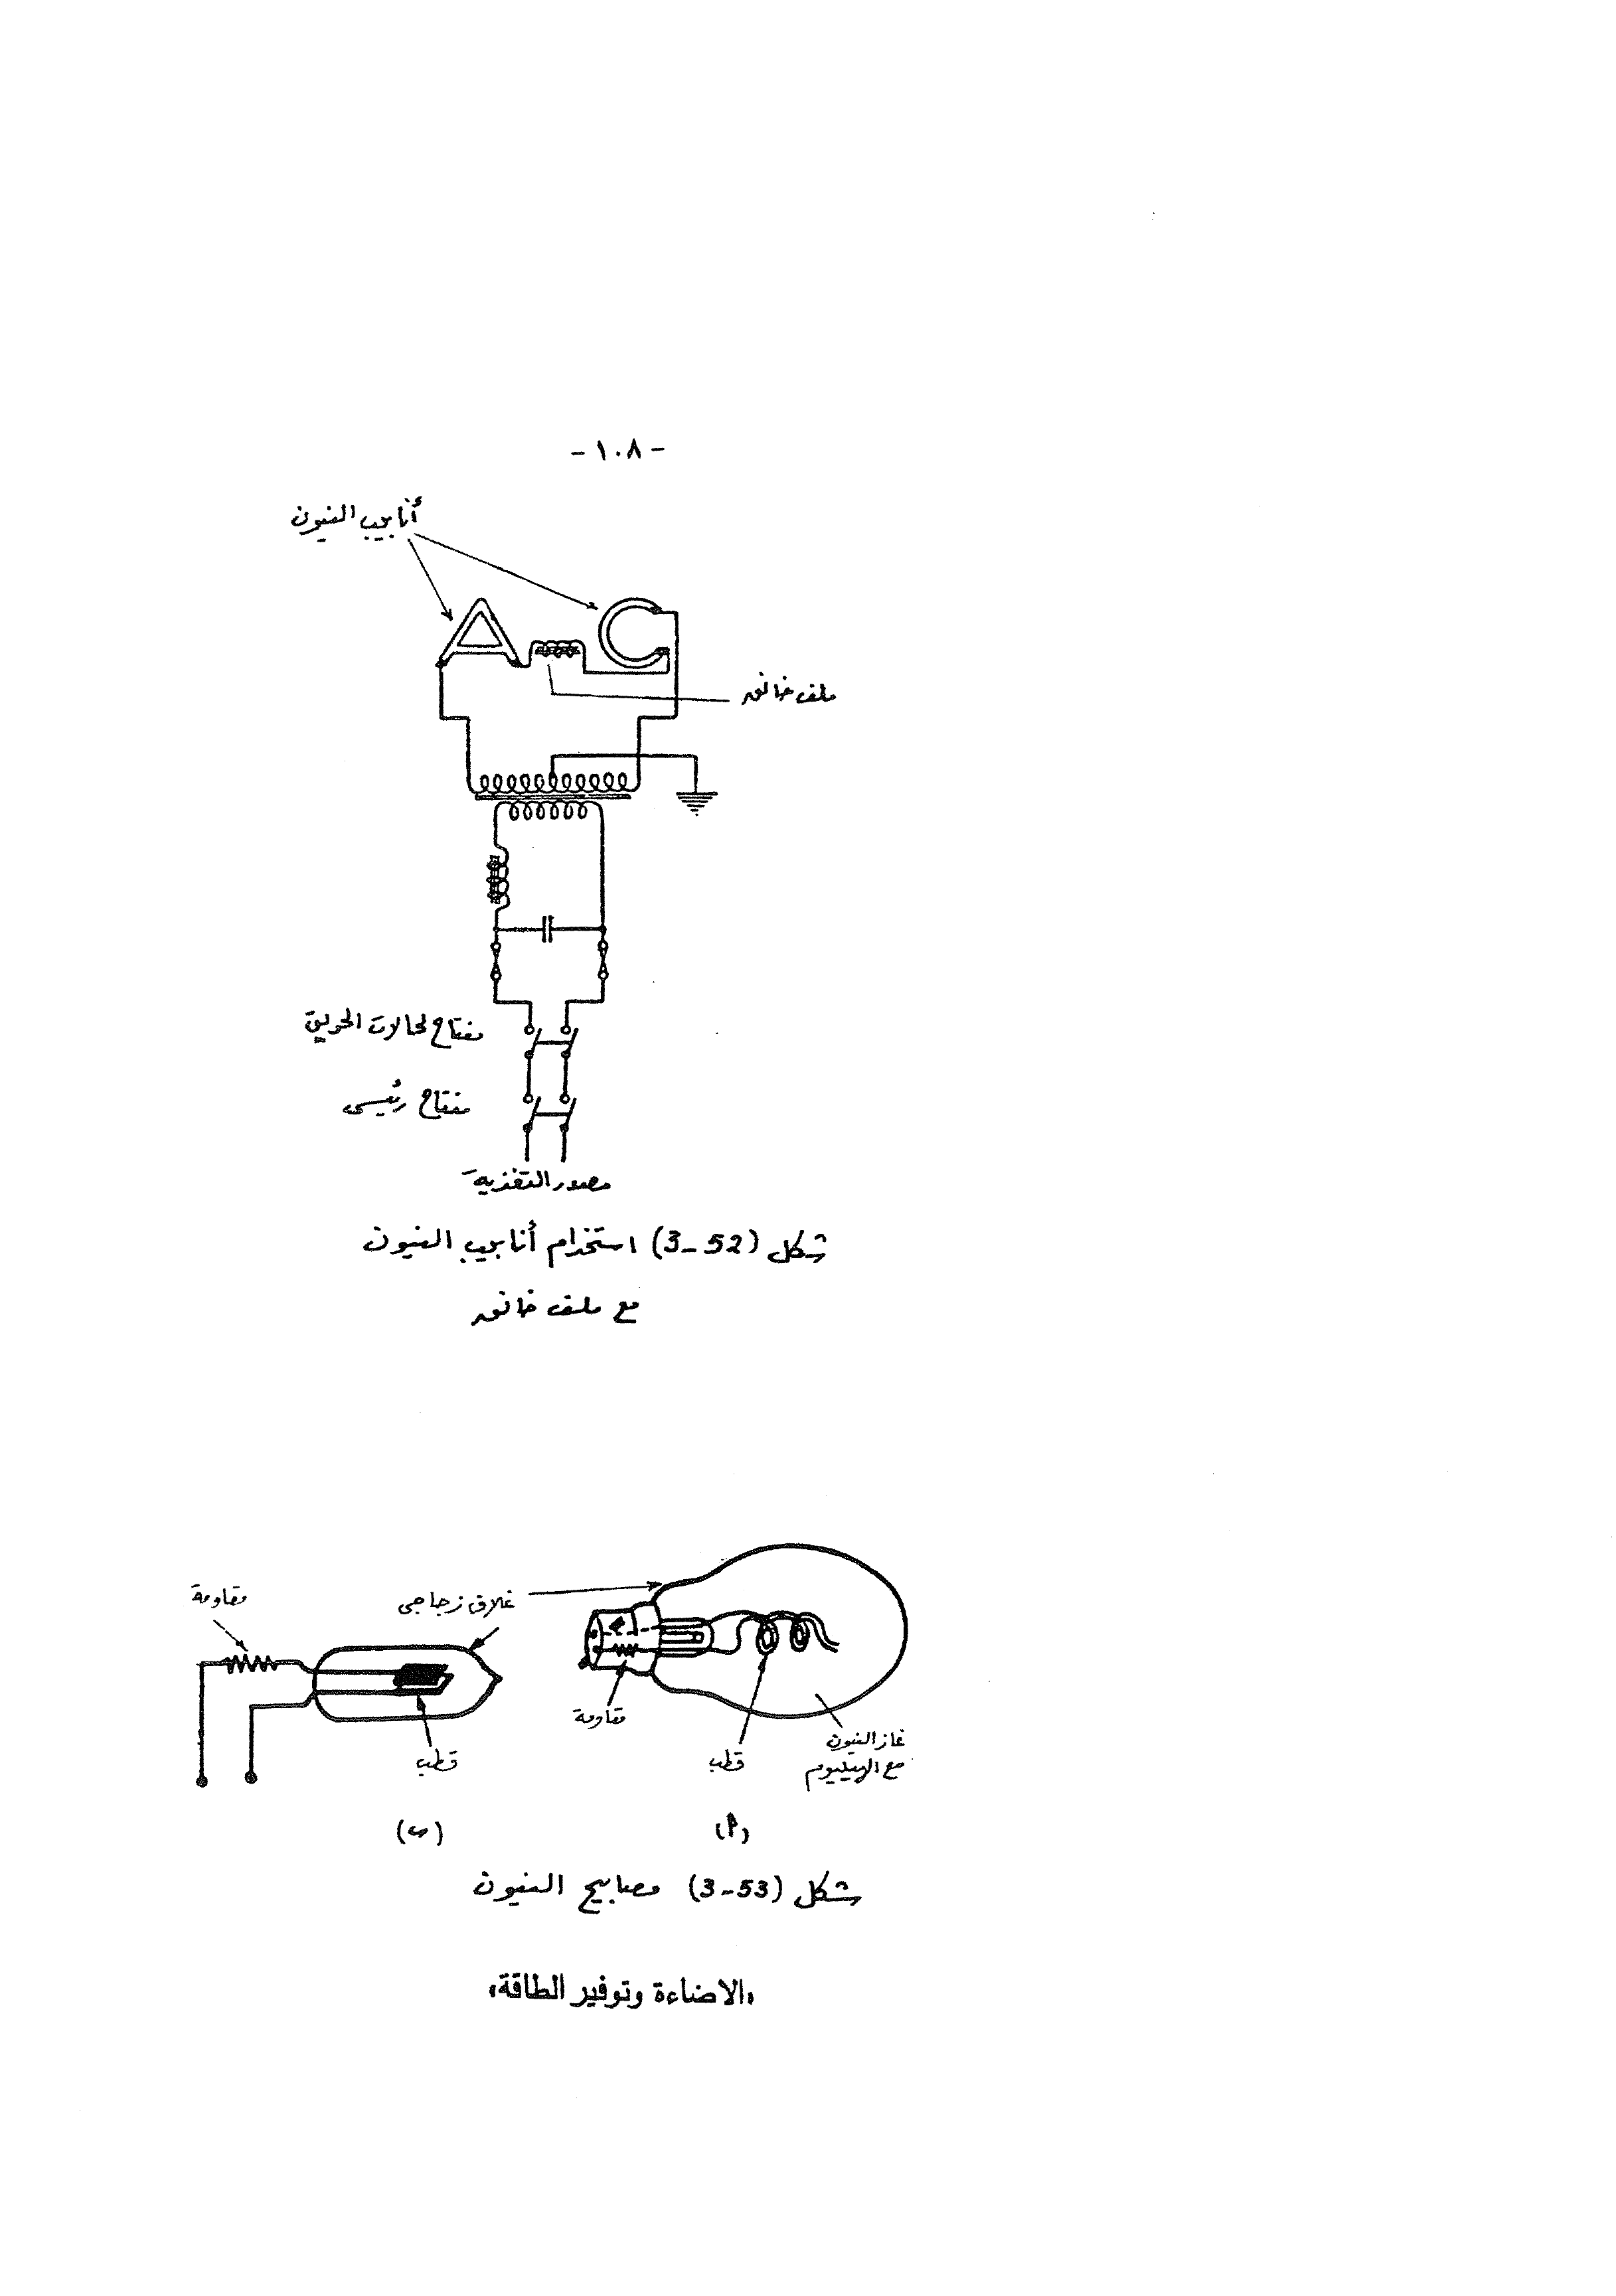 - ١٠٨ -
أنابيب النيون
ملف خانق
مفتاح لحالات الحريق
مفتاح رئيسى
مصدر التغذية
شكل (3-52) استخدام أنابيب النيون
مع ملف خانق
مقاومة
غلاق زجاجى
مقاومة
قطب
قطب
غاز النيون
مع الهيليوم
(أ)
(ب)
شكل (3-53) مصابيح النيون
«الاضاءة وتوفير الطاقة»